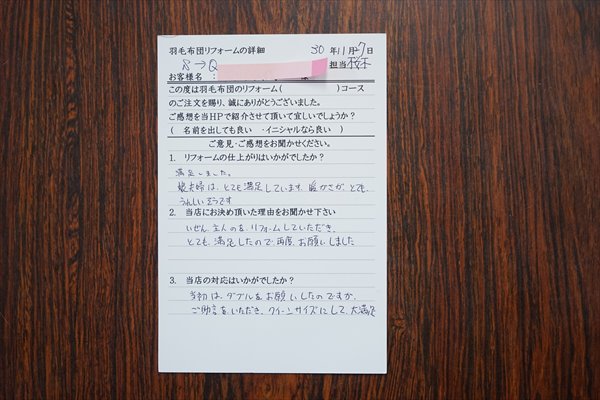 羽毛布団リフォームの詳細 30年11月7日
S→Q 担当
お客様名：
この度は羽毛布団のリフォーム( )コース
のご注文を賜り、誠にありがとうございました。
ご感想を当HPで紹介させて頂いて宜しいでしょうか？
( 名前を出しても良い ・イニシャルなら良い )
ご意見・ご感想をお聞かせください。
1. リフォームの仕上がりはいかがでしたか？
満足しました。
娘夫婦は、とても満足しています。暖かさが、とても、
うれしいそうです
2. 当店にお決め頂いた理由をお聞かせ下さい
いぜん、主人のを、リフォームしていただき、
とても、満足したので、再度、お願いしました
3. 当店の対応はいかがでしたか？
当初は、ダブルをお願いしたのですが、
ご助言をいただき、クイーンサイズにして、大満足